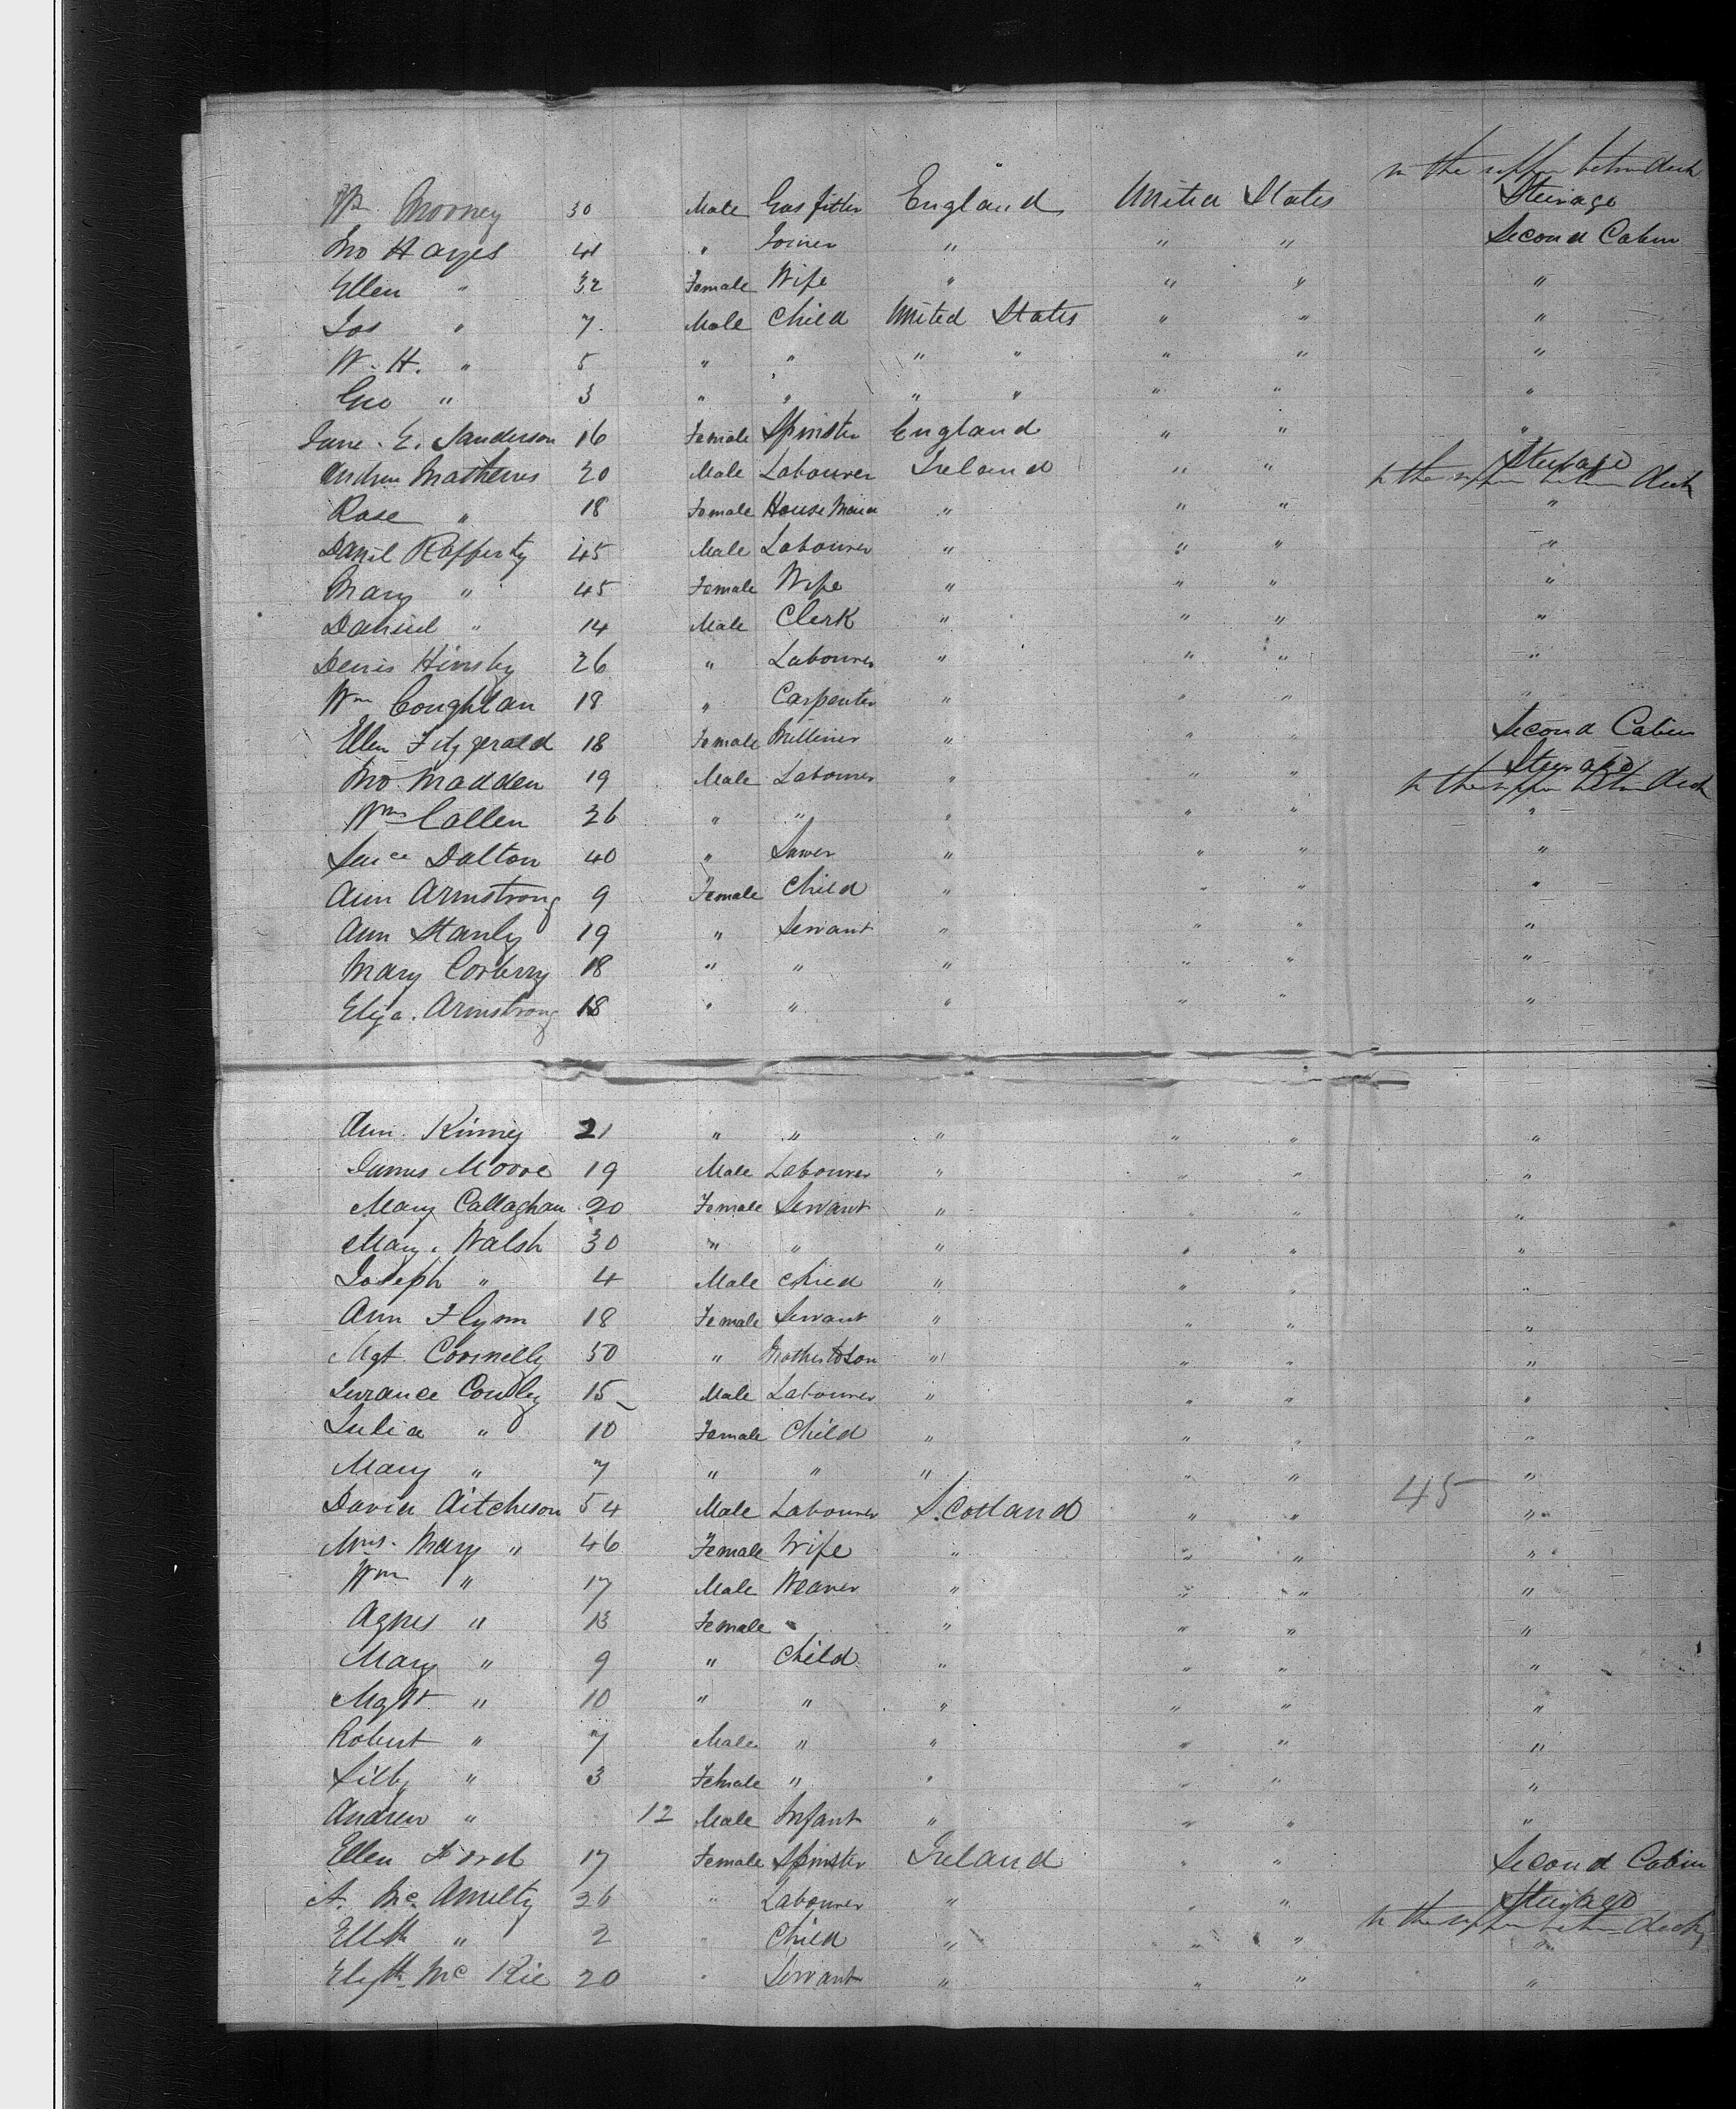 in the upper between deck
Wm Mooney 30 Male Gas fitter England United States Steerage
Jno Hayes 41 " Joiner " " " Second Cabin
Ellen " 32 Female Wife " " " "
Jos " 7 Male Child United States " " "
W. H. " 5 " " " " " " "
Geo " 3 " " " " " " "
Jane E. Sanderson 16 Female Spinster England " " "
Andrew Mathews 20 Male Labourer Ireland " " Steerage
in the upper between deck
Rose " 18 Female House Maid " " " "
Danil Rafferty 45 Male Labourer " " " "
Mary " 45 Female Wife " " " "
Daniel " 14 Male Clerk " " " "
Denis 26 " Labourer " " " "
Wm Coughlan 18 " Carpenter " " " "
Ellen Fitzgerald 18 Female Milliner " " " Second Cabin
Jno Madden 19 Male Labourer " " " Steerage
in the upper between deck
Wm Callen 26 " " " " " "
Dalton 40 " " " " "
Ann Armstrong 9 Female Child " " " "
Ann Stanly 19 " Servant " " " "
Mary 18 " " " " " "
Eliza. Armstrong 18 " " " " " "
Ann Kinney 21 " " " " " "
James Moore 19 Male Labourer " " " "
Mary Callaghan 20 Female Servant " " " "
Mary Walsh 30 " " " " " "
Joseph " 4 Male Child " " " "
Ann Flynn 18 Female Servant " " " "
Mgt Connelly 50 " " " " "
15 Male Labourer " " " "
Julia " 10 Female Child " " " "
Mary " 7 " " " " " "
45
David Aitcheson 54 Male Labourer Scotland " " "
Mrs. Mary " 46 Female Wife " " " "
Wm " 17 Male Weaver " " " "
Agnes " 13 Female " " " " "
Mary " 9 " Child " " " "
Mgrt " 10 " " " " " "
Robert " 7 Male " " " " "
Lilly " 3 Female " " " " "
Andrew " 12 Male Infant " " " "
Ellen Ford 17 Female Spinster Ireland " " Second Cabin
A. Mc 26 " Labourer " " " Steerage
in the upper between deck
" 2 " Child " " " "
Elizth Mc Kie 20 " Servant " " " "